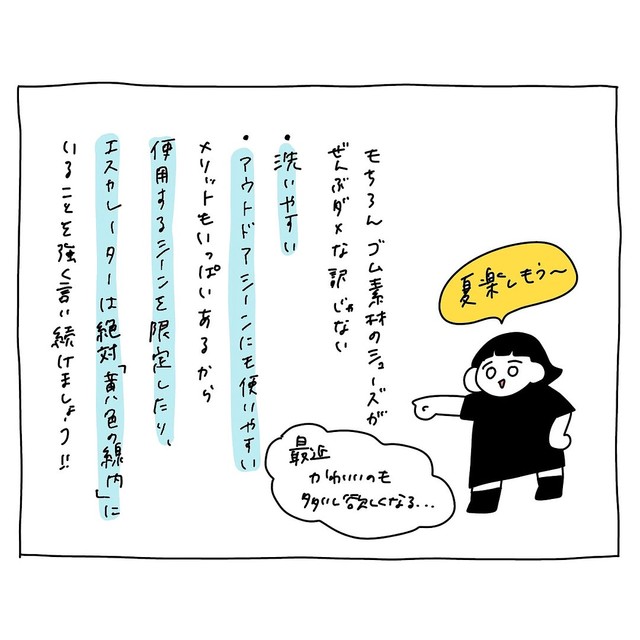 もちろんゴム素材のシューズが
ぜんぶダメな訳じゃない
・洗いやすい
・アウトドアシーンにも使いやすい
メリットもいっぱいあるから
使用するシーンを限定したり、
エスカレーターは絶対「黄色の線内」に
いることを強く言い続けましょう!!
夏楽しもう〜
最近
かわいいのも
多いし欲しくなる...